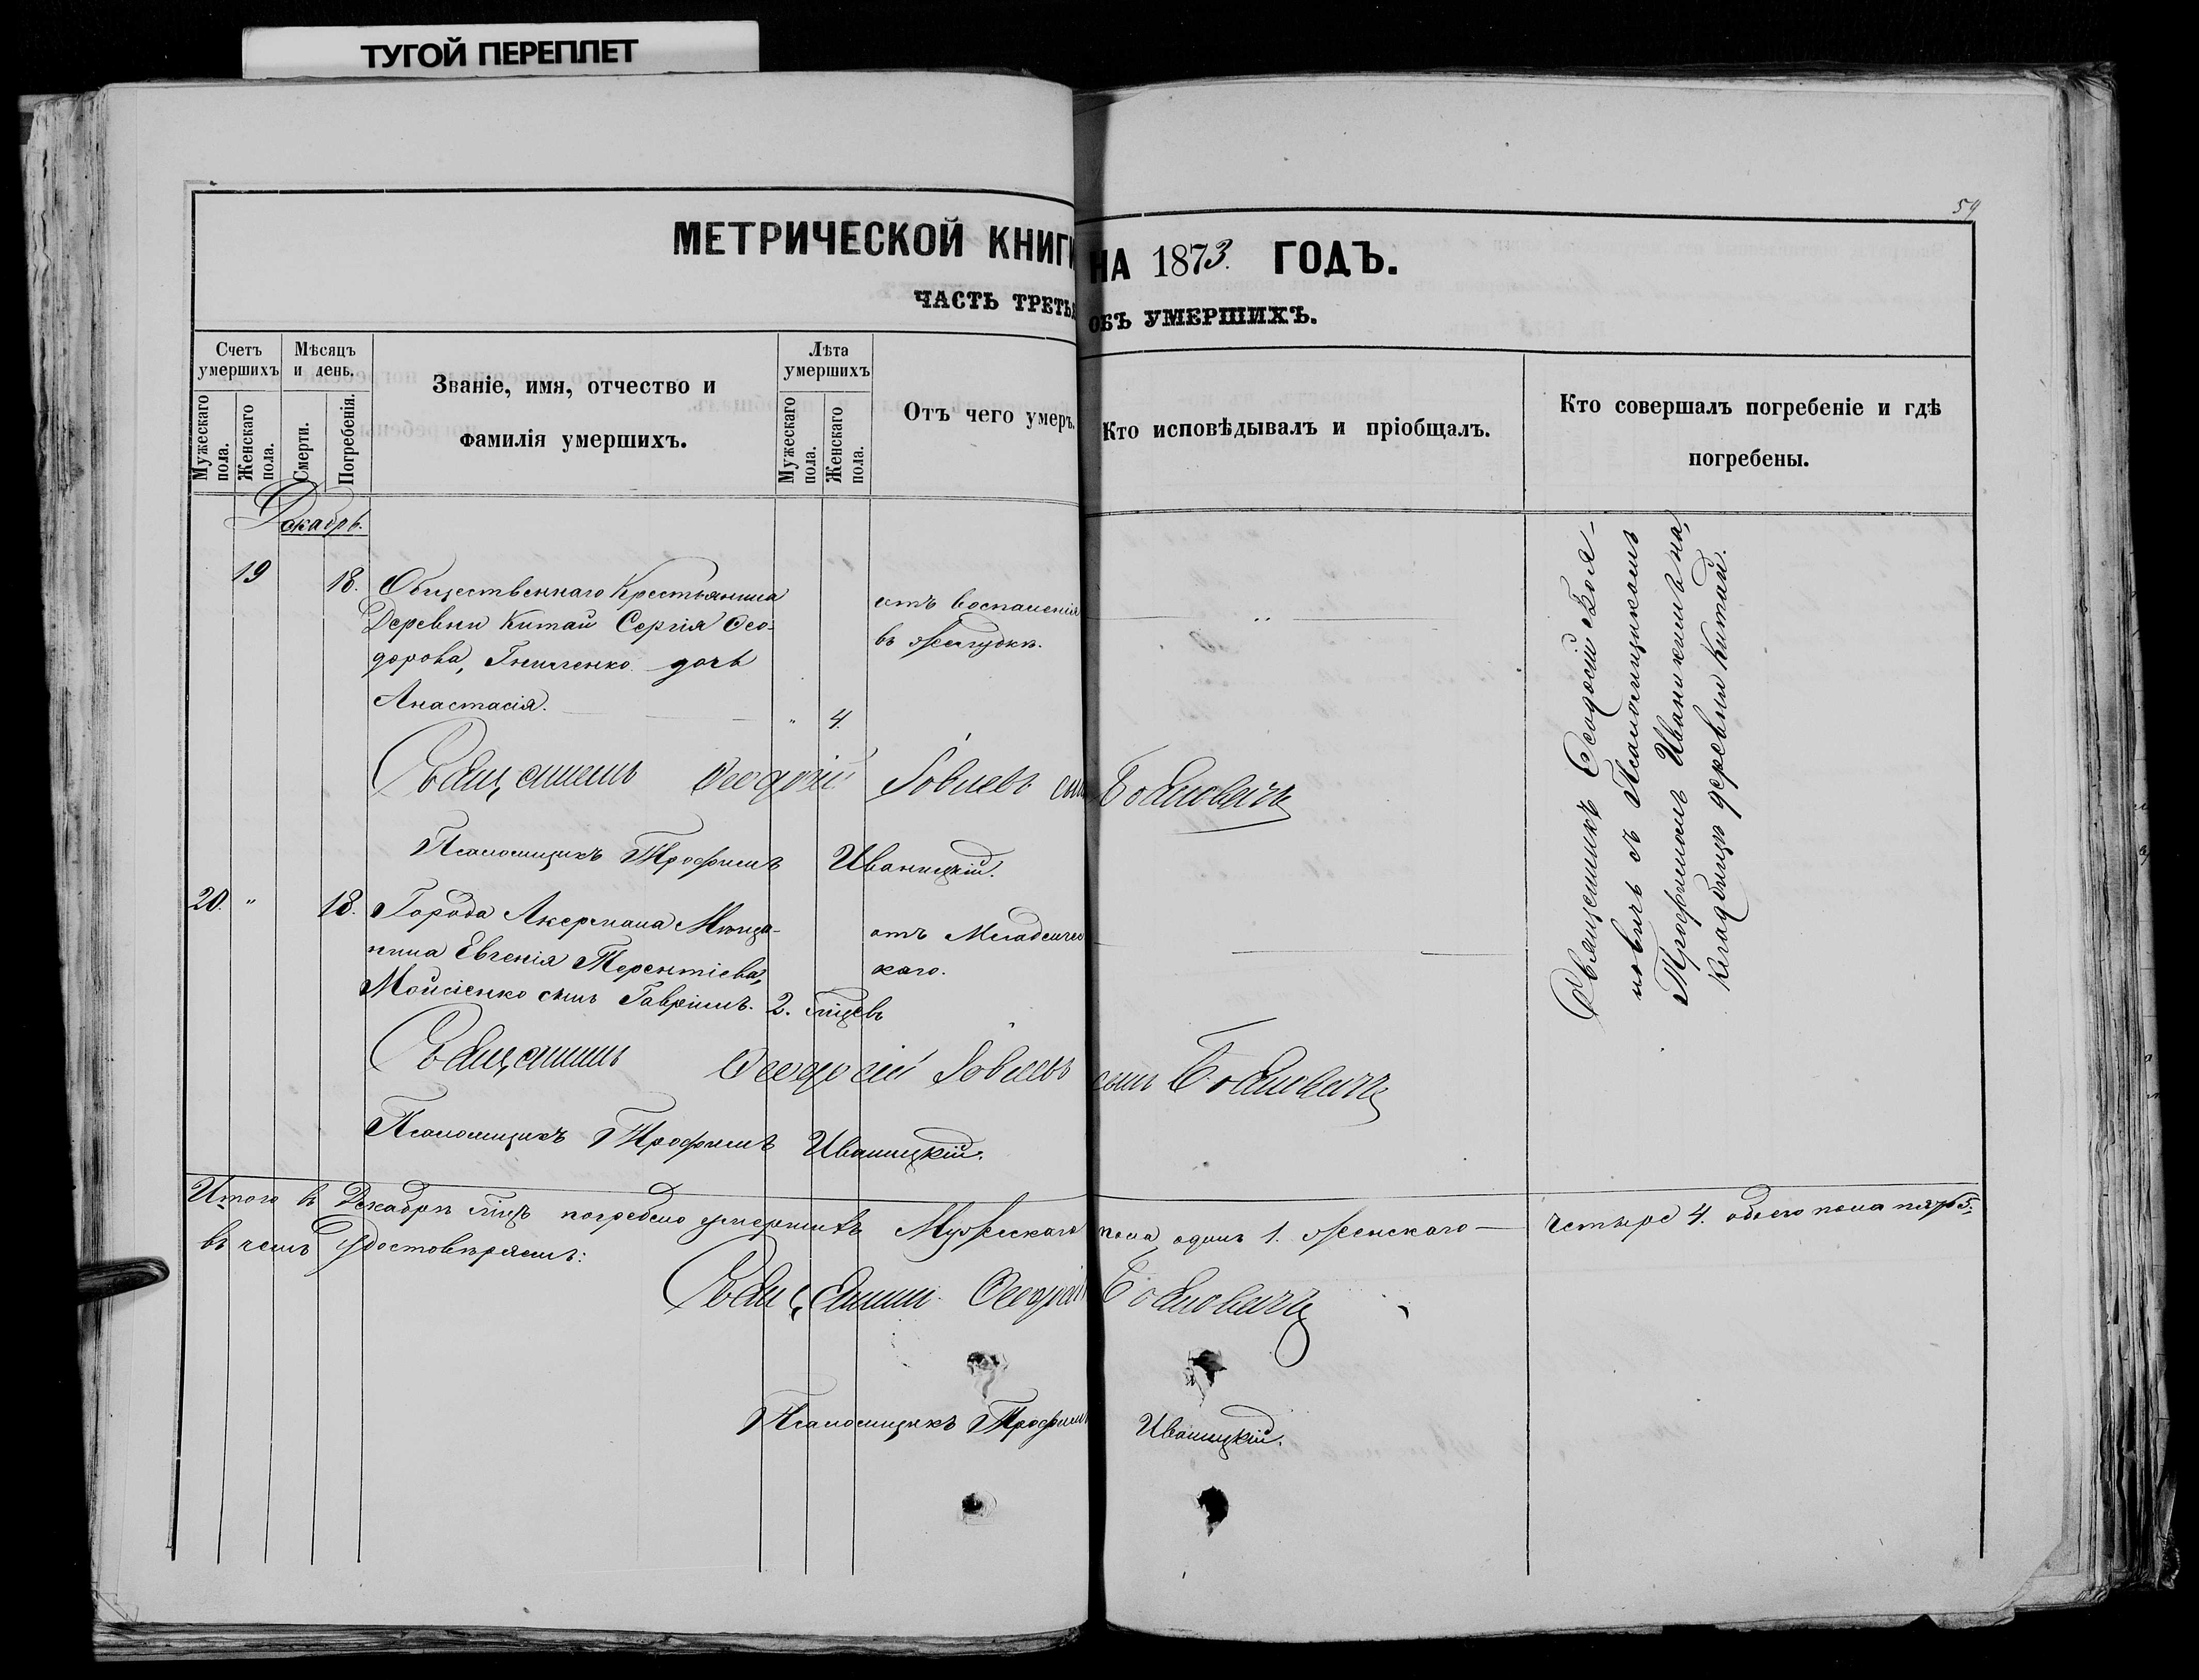 ТУГОЙ ПЕРЕПЛЕТ
59
МЕТРИЧЕСКОЙ КНИГИ НА 1873. ГОДЪ.
ЧАСТЬ ТРЕТЬЯ ОБЪ УМЕРШИХЪ.
Счетъ умершихъ
Мужескаго пола.
Женскаго пола.
Мѣсяцъ и день.
Смерти.
Погребенія.
Званіе, имя, отчество и
фамилія умершихъ.
Лѣта умершихъ
Мужескаго пола.
Женскаго пола.
Отъ чего умеръ.
Кто исповѣдывалъ и пріобщалъ.
Кто совершалъ погребеніе и гдѣ
погребены.
Декабрь.
19 18. Общественнаго Крестьянина
Деревни Китай Сергія Ѳео-
дорова, дочь
Анастасія. " 4.
отъ воспаленія
въ желудкѣ.
Священникъ Ѳеодосій Боя-
новичъ съ Псаломщикомъ
Трофимомъ Иваницкимъ на
кладбищѣ деревни Китай.
Священникъ Ѳеодосій сынъ Бояновичъ
Псаломщикъ Трофимъ Иваницкій.
20. " 18. Города Акермана Мѣща-
нина Евгенія Терентіева,
Мойсіенко сынъ Гавріилъ. 2. мѣсцевъ
отъ Младенчес
каго.
Священникъ Ѳеодосій сынъ Бояновичъ
Псаломщикъ Трофимъ Иваницкій.
Итого въ Декабрѣ мцѣ погребено умершихъ Мужескаго пола одинъ 1. женскаго — четыре 4. обоего пола пять 5.
въ чемъ удостовѣряемъ:
Священникъ Ѳеодосій Бояновичъ
Псаломщикъ Трофимъ Иваницкій.